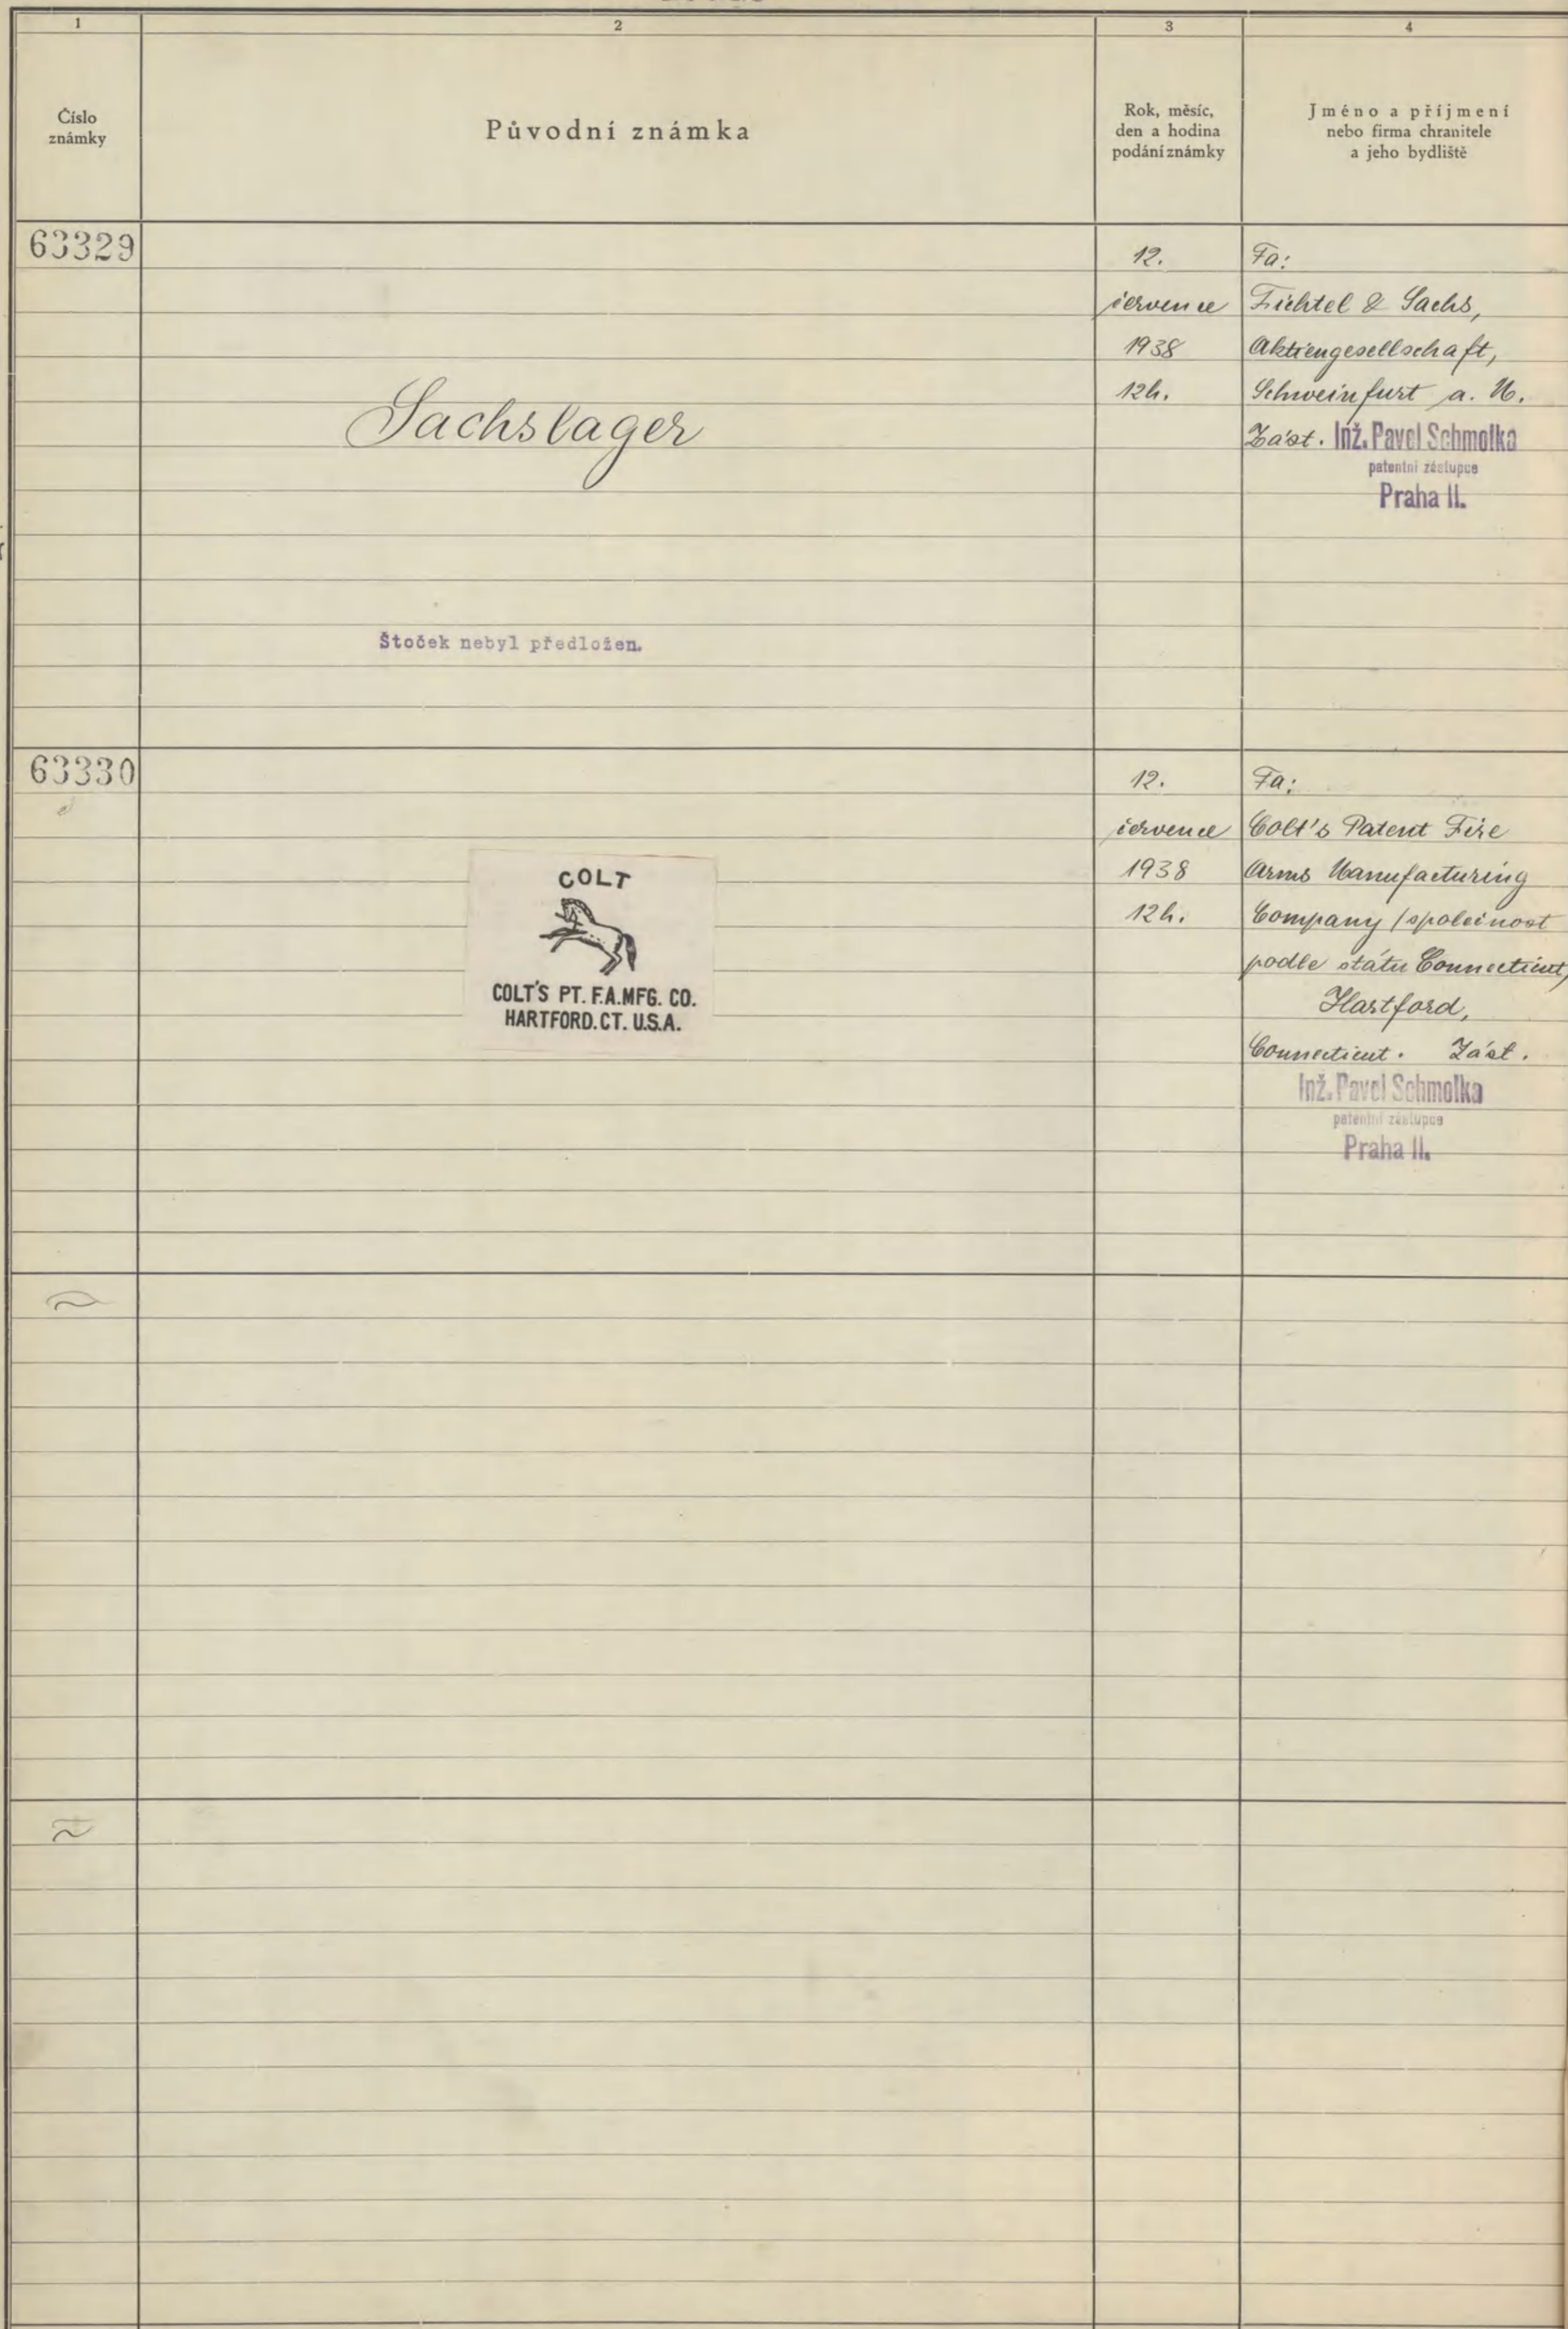 1
2
3
4
Číslo
známky
Původní známka
Rok, měsíc,
den a hodina
podání známky
Jméno a příjmení
nebo firma chranitele
a jeho bydliště
63329
Sachslager
Štoček nebyl předložen.
12.
července
1938
12h.
Fa:
Fichtel & Sachs,
Aktiengesellschaft,
Schweinfurt a. M.
Zást. Inž. Pavel Schmolka
patentní zástupce
Praha II.
63330
COLT
COLT'S PT. F.A.MFG. CO.
HARTFORD.CT. U.S.A.
12.
července
1938
12h.
Fa:
Colt's Patent Fire
Arms Manufacturing
Company /společnost
podle státu Connecticut,
Hartford,
Connecticut. Zást.
Inž. Pavel Schmolka
patentní zástupce
Praha II.